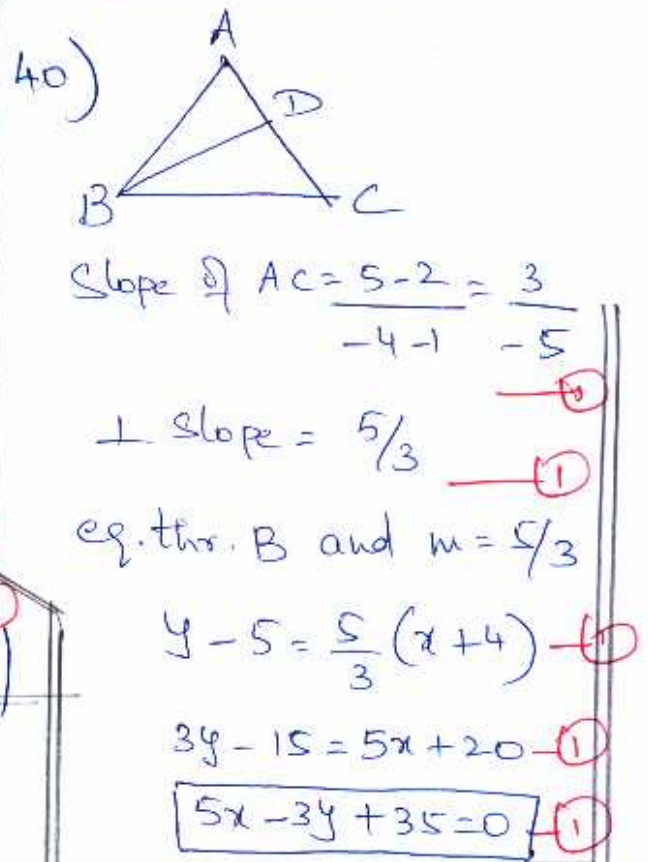 40)
A
D
B
C
Slope of AC = 5-2 / -4-1 = 3 / -5
1
⊥ Slope = 5/3
1
eq. thr. B and m = 5/3
y - 5 = 5/3 (x + 4)
1
3y - 15 = 5x + 20
1
5x - 3y + 35 = 0
1